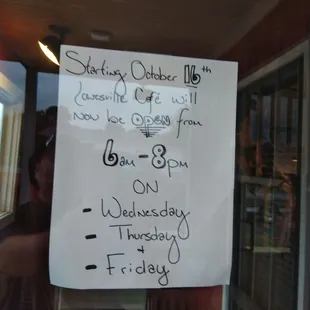 Starting October 16th
Lowesville Café will
now be OPEN from
6am-8pm
ON
- Wednesday
- Thursday
+
- Friday